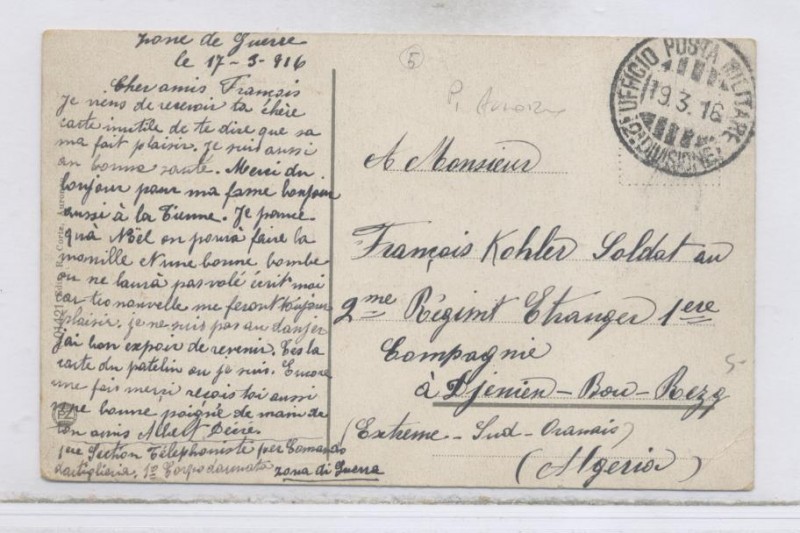 zone de Guerre
le 17-3-916
Cher amis François
Je viens de recevoir ta chère
carte inutile de te dire que sa
ma fait plaisir. Je suis aussi
an bonne santé. Merci du
bonjour pour ma fame bonjour
aussi à la Tienne. Je pence
quà Nöel on pourà faire la
manille et une bonne bombe
on ne laurà pas volé écrit moi
car tes nouvelle me feront toujour
plaisir. je ne suis pas au danjer
jai bon espoir de revenir. Ces la
carte du patelin ou je suis. Encore
une fois merci reçois toi aussi
une bonne poigne de main de
ton amis Albert
1ere Section Téléphoniste per Comando
dartiglieria. 1º Corpo darmata
zona di Guerra
5
UFFICIO POSTA MILITARE
19.3.16
DIVISIONE
A Monsieur
François Kohler Soldat au
2me Régimt Etranger 1ere
Compagnie
à Djenien-Bou-Rezg
(Extreme-Sud-Oranais)
(Algeria)